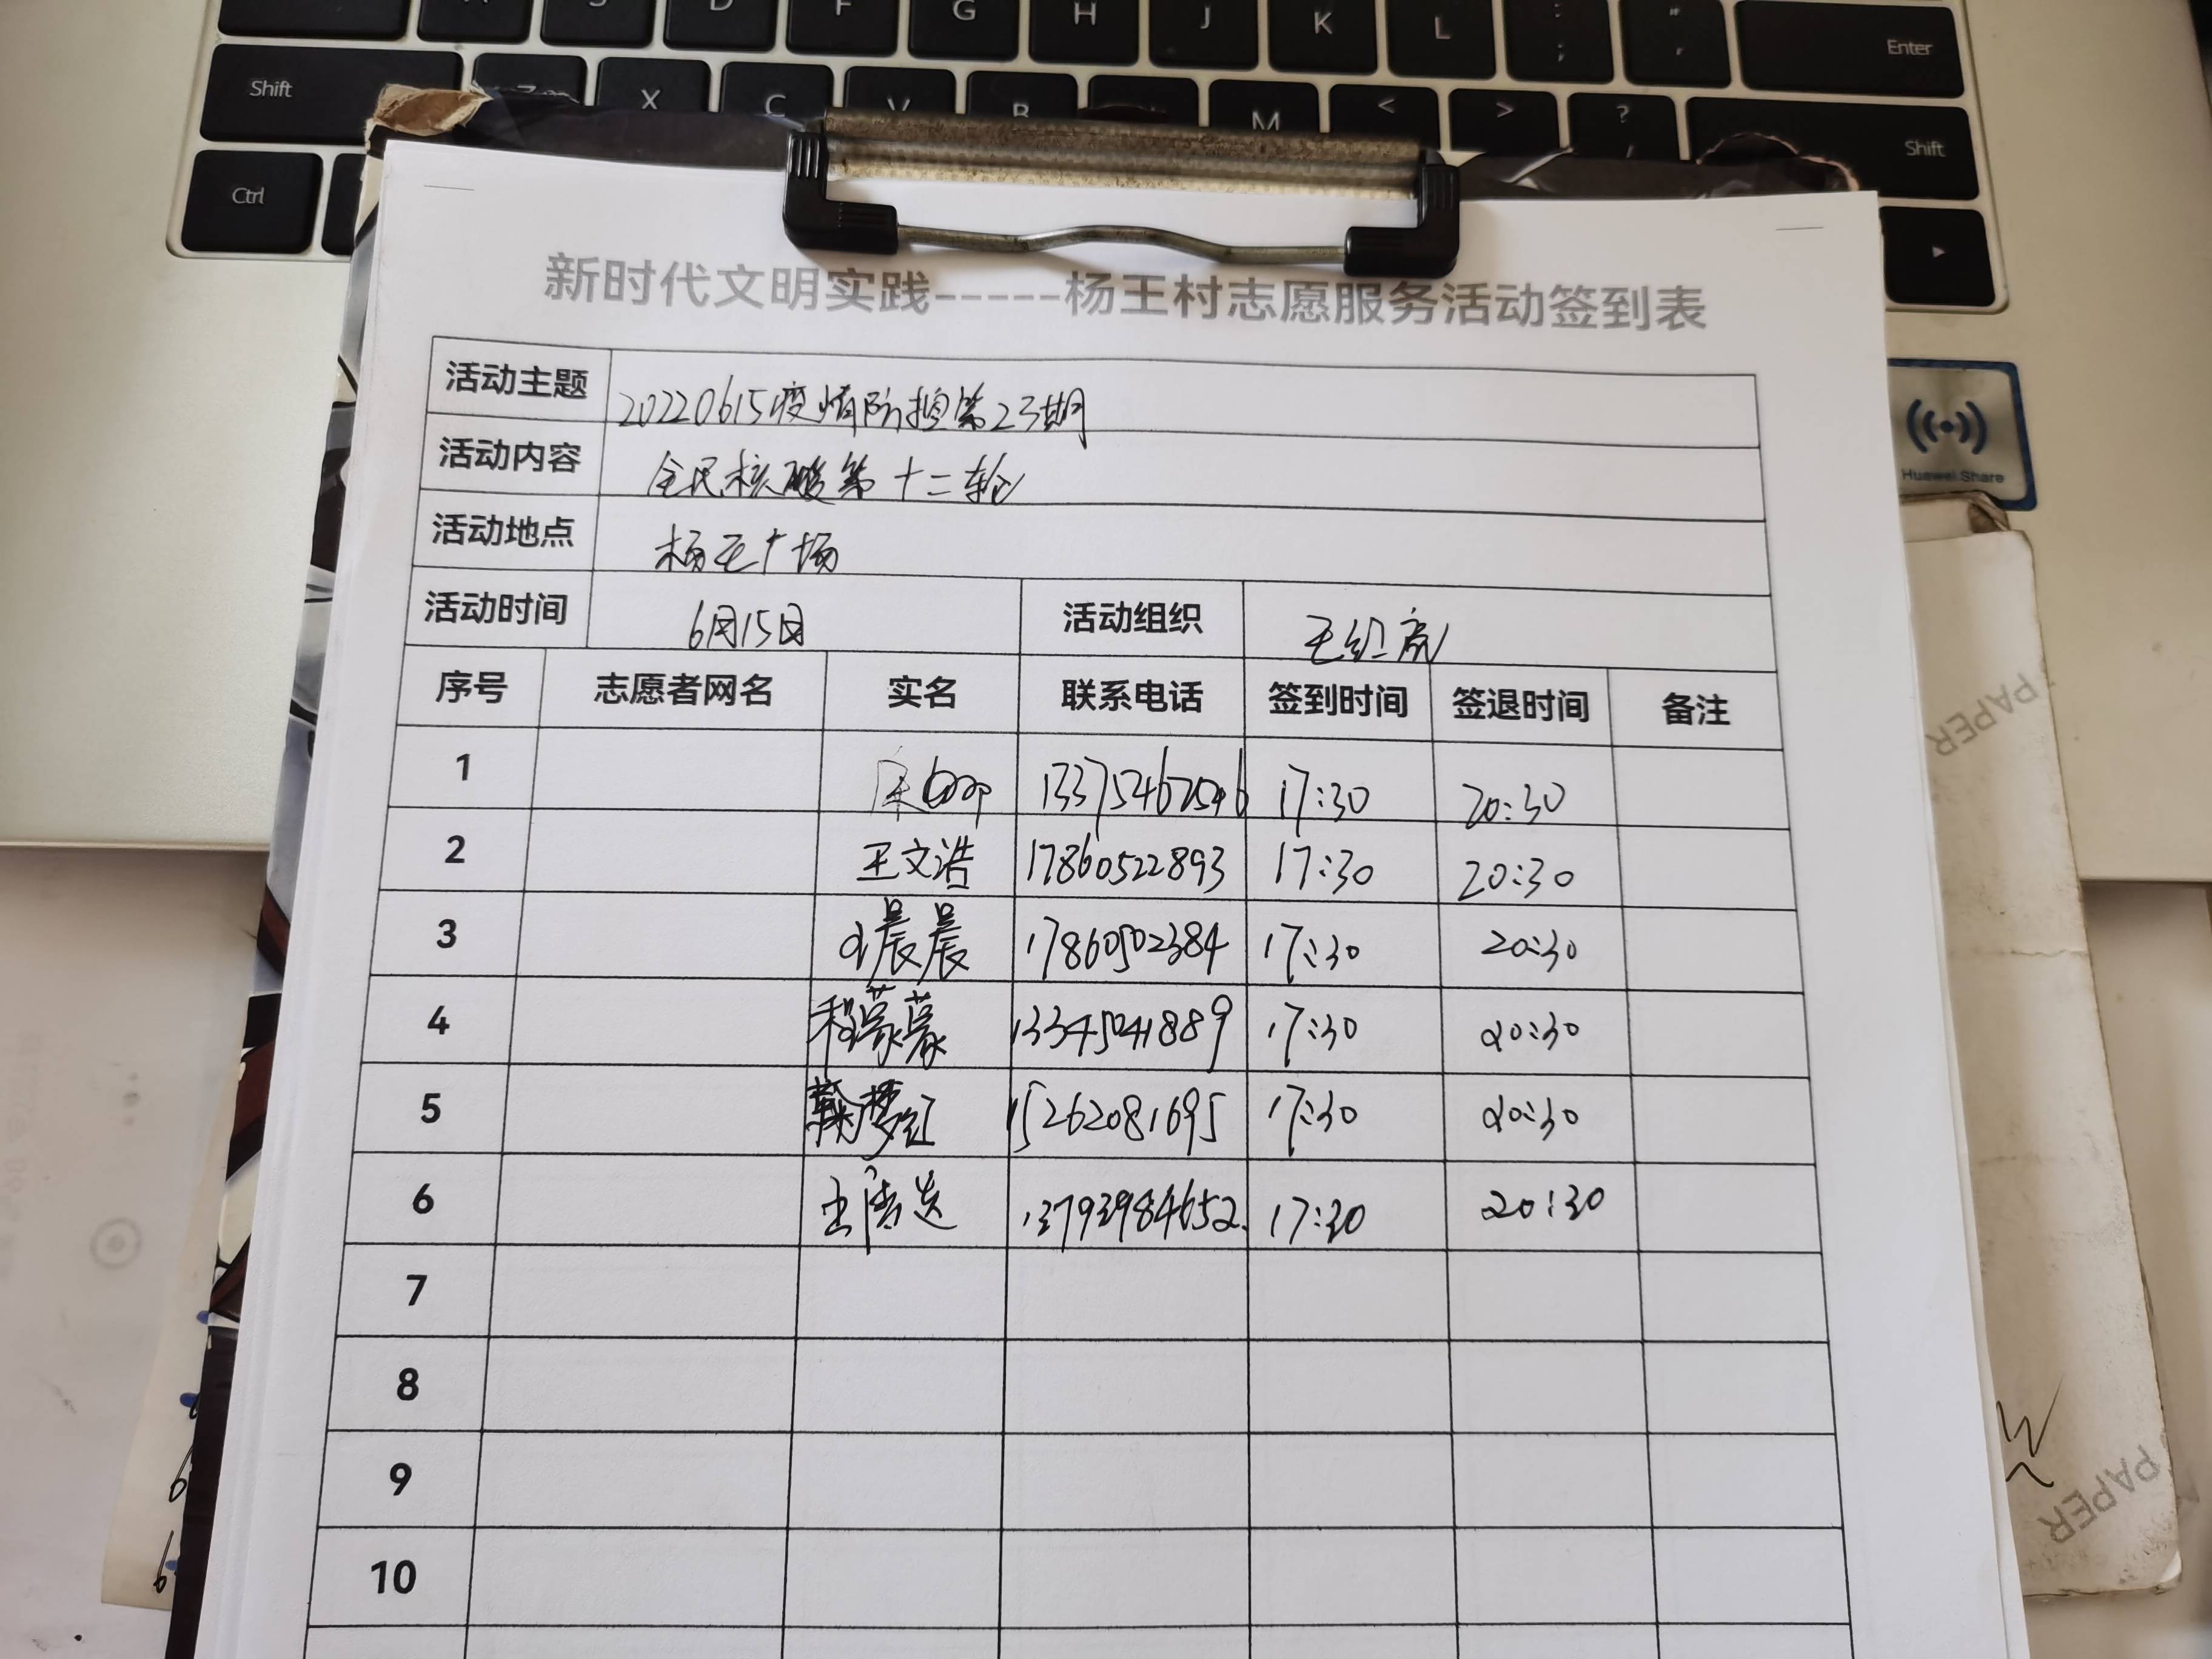 A S D F G H J K L : ; " ' Enter
Shift Z X C V B M < > ? / Shift
Ctrl
新时代文明实践-----杨王村志愿服务活动签到表
活动主题 20220615疫情防控第23期
活动内容 全民核酸第十二轮
活动地点 杨王广场
活动时间 6月15日 活动组织 王红亮
序号 志愿者网名 实名 联系电话 签到时间 签退时间 备注
1 17:30 20:30
2 王文浩 17860522893 17:30 20:30
3 晨晨 17860502384 17:30 20:30
4 程蒙蒙 13345041889 17:30 20:30
5 鞠梦红 15262081695 17:30 20:30
6 13793984652 17:30 20:30
7
8
9
10
Huawei Share
PAPER
PAPER